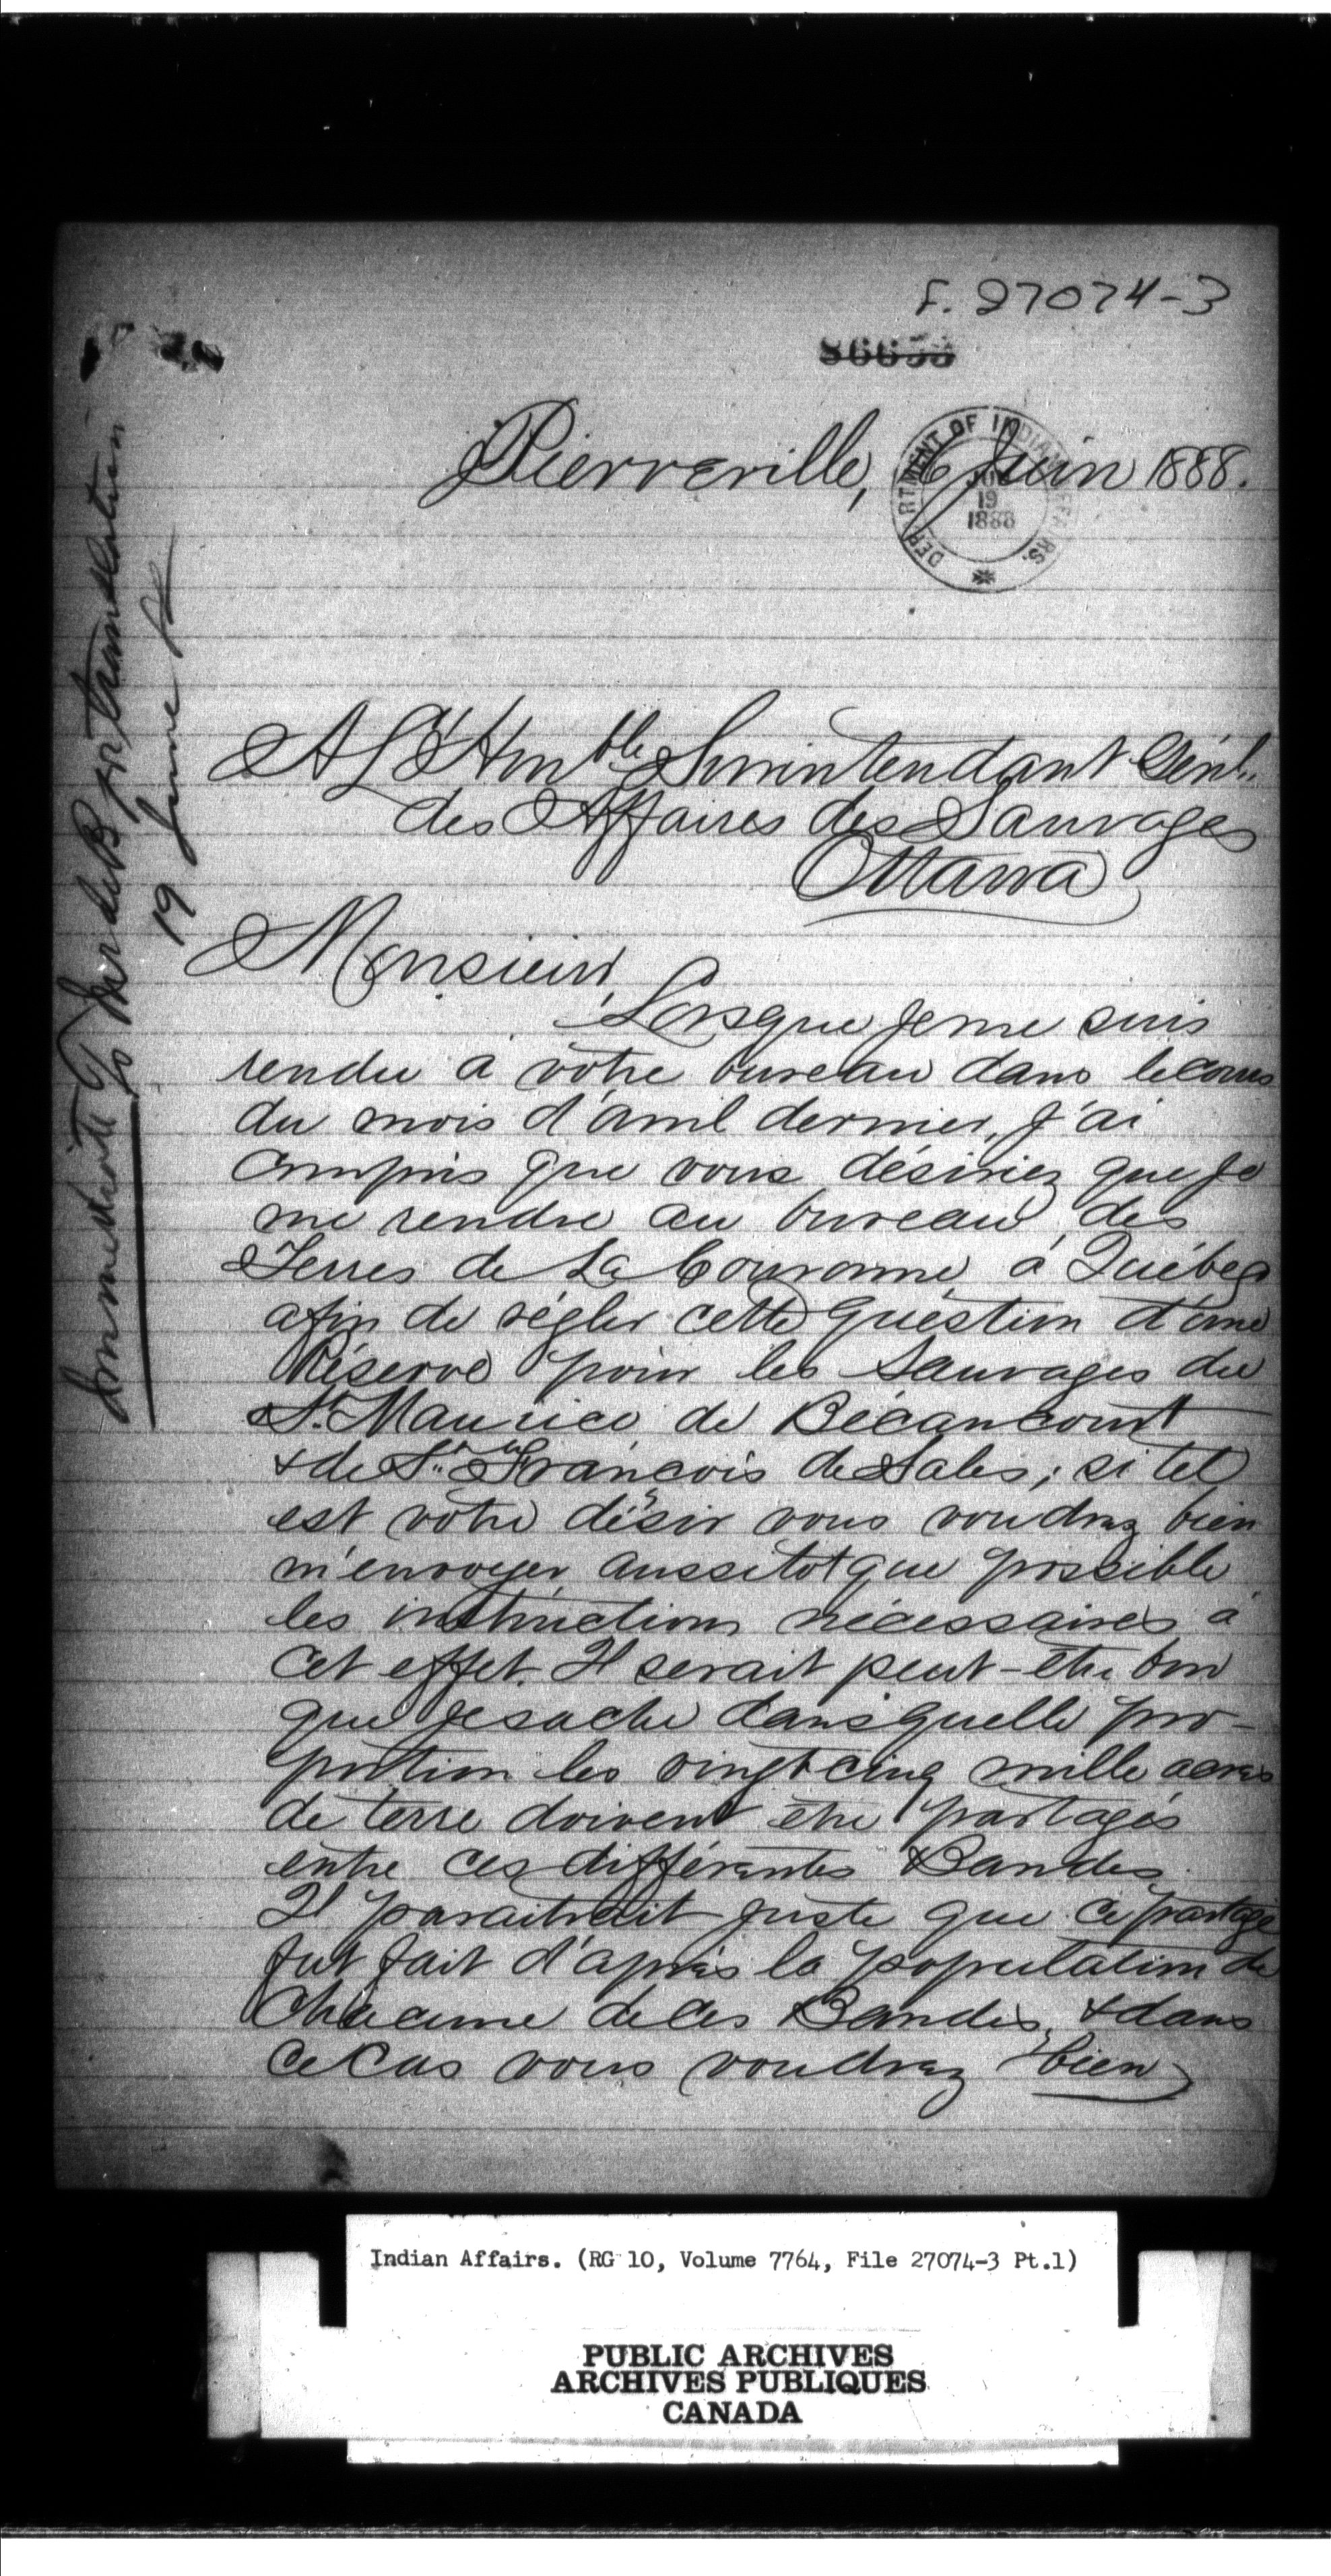 F. 27074-3
86653
Pierreville, 6 Juin 1888.
DEPARTMENT OF INDIAN AFFAIRS.
19
1888
A L'Honble Surintendant Génl.
des Affaires des Sauvages
Ottawa
Monsieur,
Lorsque je me suis
rendu à votre bureau dans le cours
du mois d'avril dernier, j'ai
compris que vous désiriez que je
me rendre au bureau des
Terres de La Couronne à Québec
afin de régler cette question d'une
Réserve pour les Sauvages du
St. Maurice de Bécancourt
& de St. François de Sales; si tel
est votre désir vous voudrez bien
m'envoyer aussitot que possible
les instructions nécessaires à
cet effet. Il serait peut-être bon
que je sache dans quelle pro-
portion les vingt cinq mille acres
de terre doivent être partagés
entre ces différentes Bandes.
Il paraitrait juste que ce partage
fut fait d'après la population de
chacune de ces Bandes, & dans
ce cas vous voudrez bien
for translation
19 June
Indian Affairs. (RG 10, Volume 7764, File 27074-3 Pt.1)
PUBLIC ARCHIVES
ARCHIVES PUBLIQUES
CANADA